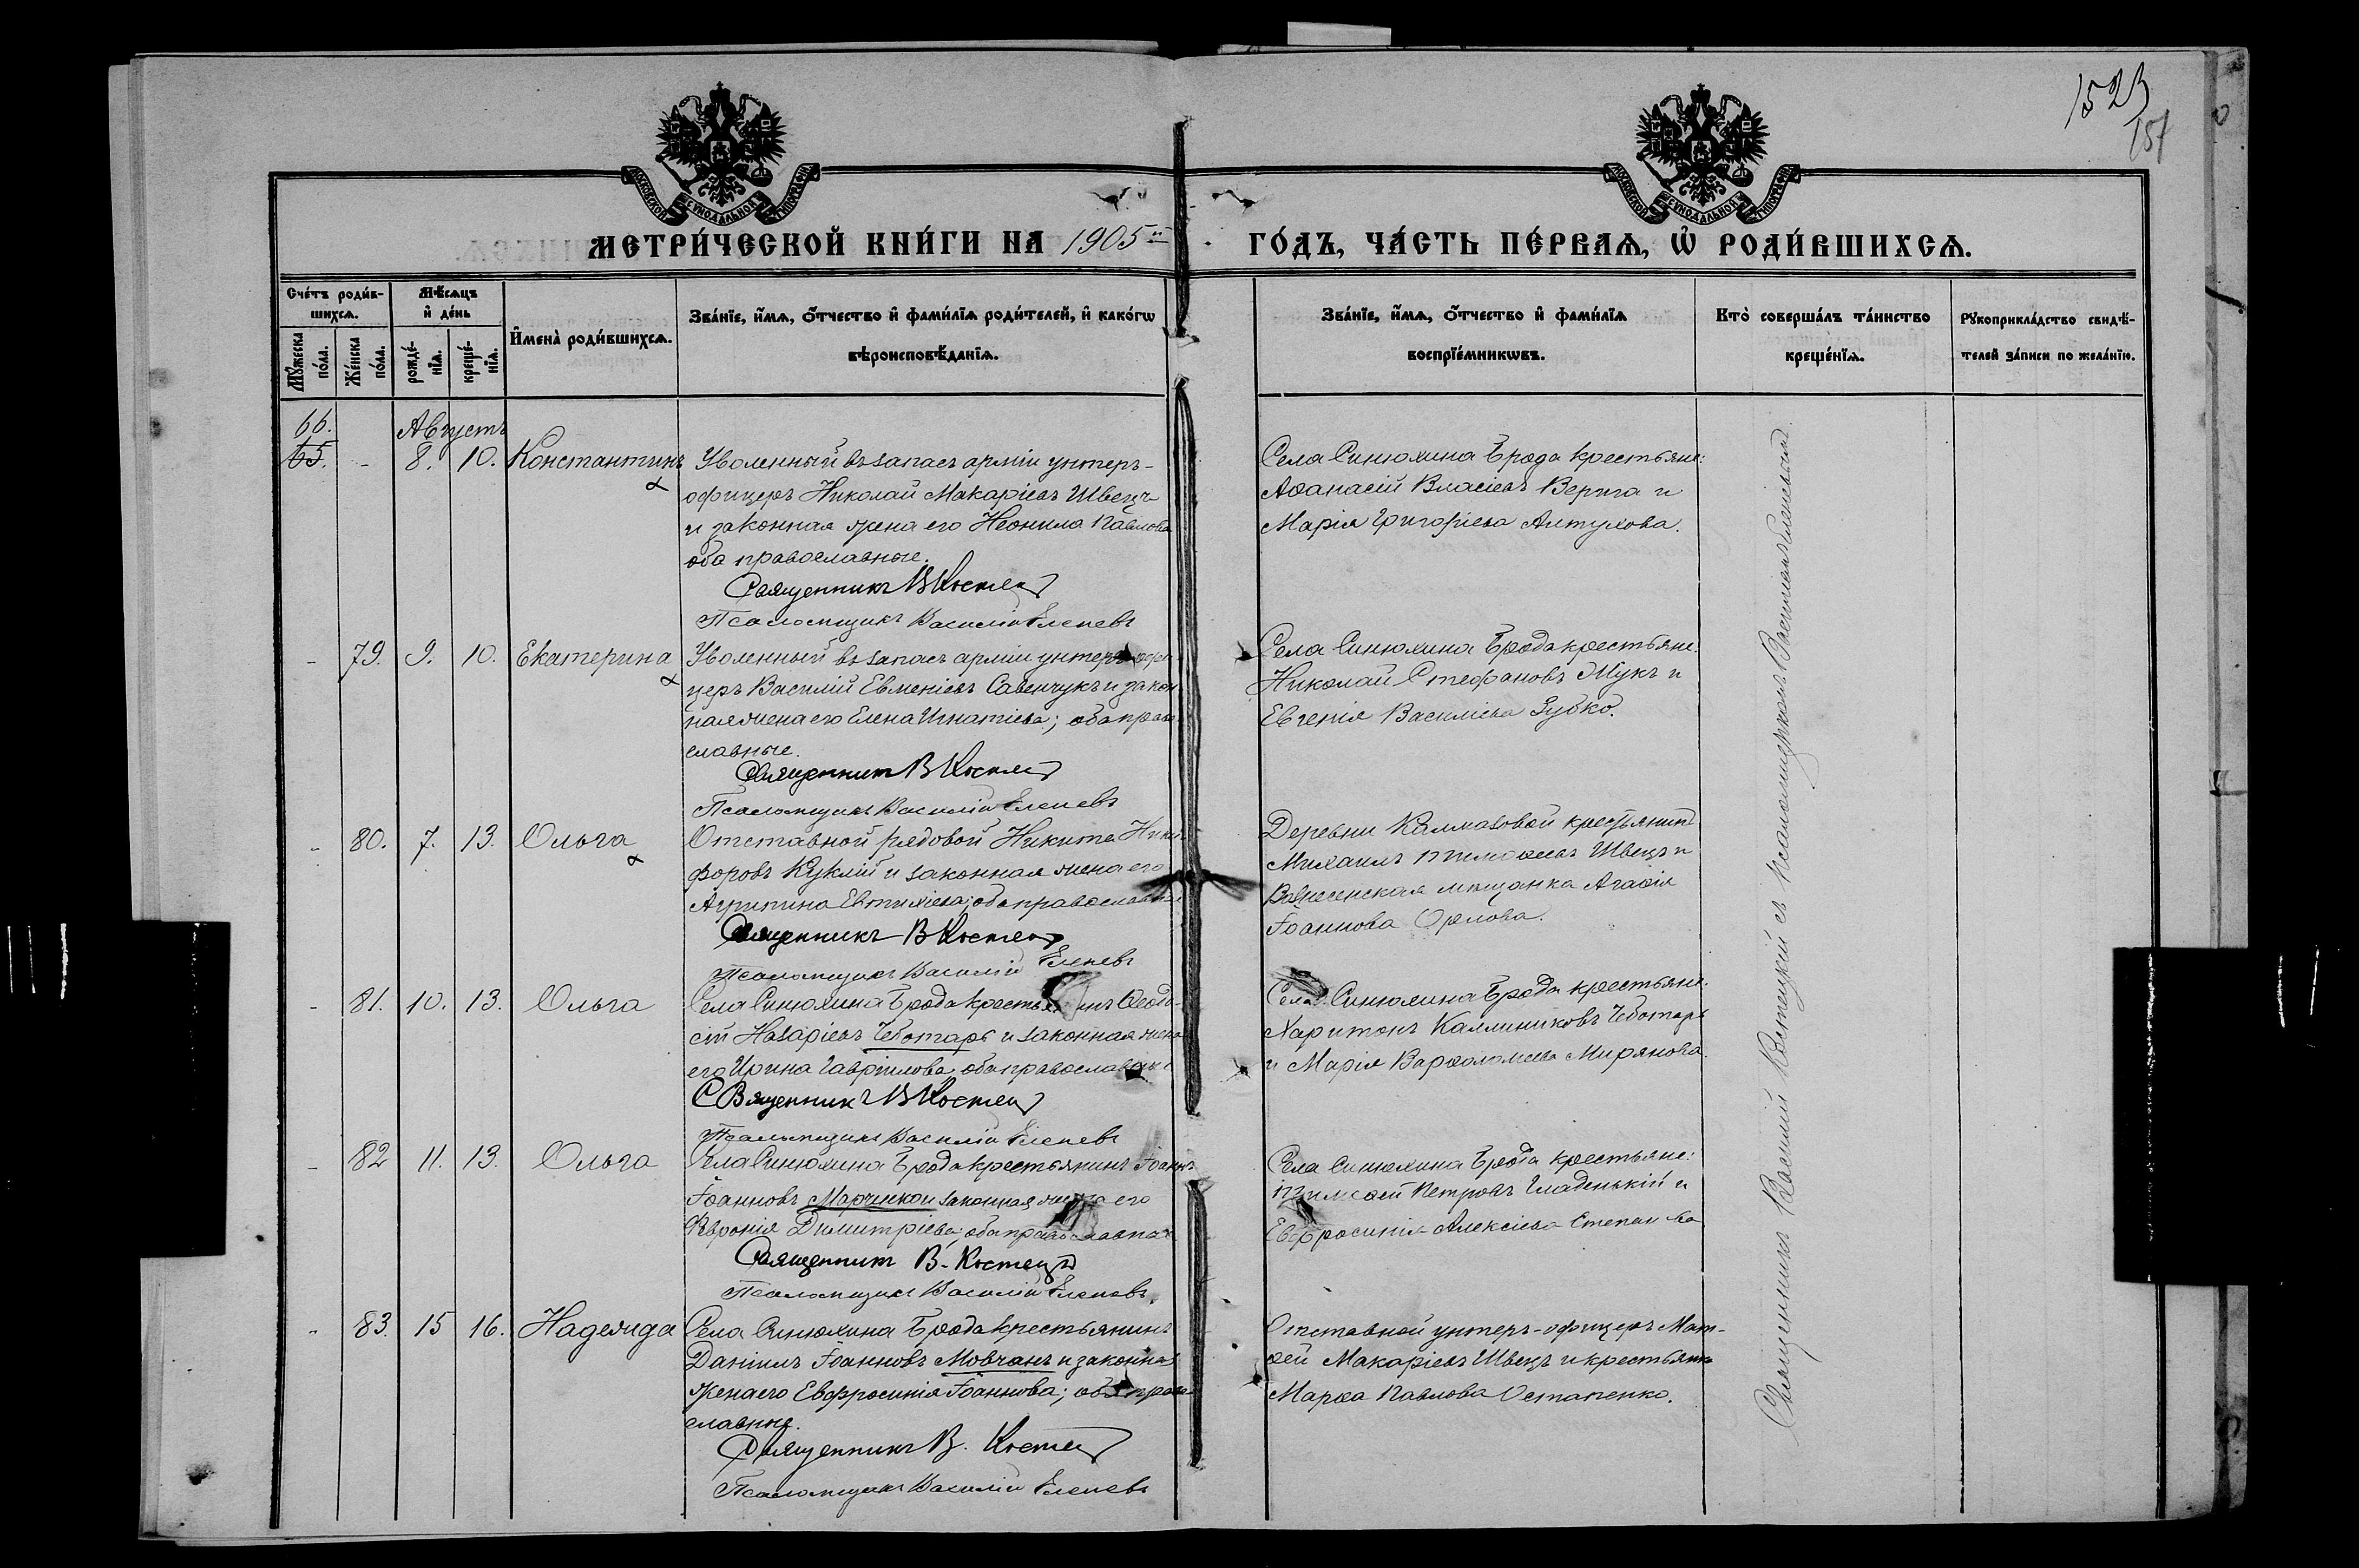 1523
151
МОСКОВСКОЙ СУНОДАЛЬНОЙ ТИПОГРАФІИ
МОСКОВСКОЙ СУНОДАЛЬНОЙ ТИПОГРАФІИ
МЕТРИ́ЧЕСКОЙ КНИ́ГИ НА 1905й ГО́ДЪ, ЧА́СТЬ ПЕ́РВАЯ, Ѡ҆ РОДИ́ВШИХСѦ.
Сче́тъ роди́в-
шихсѧ.
Мѣ́сѧцъ
и҆ де́нь
Мꙋ́жеска
по́ла.
Же́нска
по́ла.
рожде́-
нїѧ.
креще́-
нїѧ.
И҆мена̀ роди́вшихсѧ.
Зва́нїе, и҆́мѧ, ѻ҆́тчество и҆ фами́лїѧ роди́телей, и҆ како́гѡ
вѣроисповѣ́данїѧ.
Зва́нїе, и҆́мѧ, ѻ҆́тчество и҆ фами́лїѧ
воспрїе́мникѡвъ.
Кто̀ соверша́лъ та́инство
креще́нїѧ.
Рꙋкоприкла́дство свидѣ́-
телей за́писи по жела́нїю.
66.
Августъ
65. - 8. 10. Константинъ
Уволенный въ запасъ арміи унтеръ-
офицеръ Николай Макаріевъ Швецъ
и законная жена его Неонила Павлова
оба православные.
Священникъ В Костец
Псаломщикъ Василій Еленевъ
Села Синюхина Брода крестьяне:
Аѳанасій Власіевъ Верига и
Марія Григоріева Алтухова.
- 79. 9. 10. Екатерина
Уволенный въ запасъ арміи унтеръ-офи-
церъ Василій Евменіевъ Савенчукъ и закон
ная жена его Елена Игнатіева; оба право
славные.
Священникъ В Костец
Псаломщикъ Василій Еленевъ
Села Синюхина Брода крестьяне:
Николай Стефановъ Жукъ и
Евгенія Василіева Зубко.
- 80. 7. 13. Ольга
Отставной рядовой Никита Ники
форовъ Куклій и законная жена его
Агрипина Евтихіева; оба православные
Священникъ В Костец
Псаломщикъ Василій Еленевъ
Деревни Калмазовой крестьянинъ
Михаилъ Тимоѳеевъ Швецъ и
Вознесенская мѣщанка Агаѳія
Іоаннова Орлова.
- 81. 10. 13. Ольга
Села Синюхина Брода крестьянинъ Ѳеодо-
сій Назаріевъ Чеботарь и законная жена
его Ирина Гавріилова, оба православные
Священникъ В Костец
Псаломщикъ Василій Еленевъ
Села Синюхина Брода крестьяне:
Харитонъ Каллиниковъ Чеботарь
и Марія Варѳоломеева Мирянова.
- 82 11. 13. Ольга
Села Синюхина Брода крестьянинъ Іоаннъ
Іоанновъ законная жена его
Ѳевронія Димитріева; оба православные
Священникъ В. Костец
Псаломщикъ Василій Еленевъ.
Села Синюхина Брода крестьяне:
Тимоѳей Петровъ Гладенькій и
Евфросинія Алексіева
- 83. 15 16. Надежда
Села Синюхина Брода крестьянинъ
Даніилъ Іоанновъ Мовчанъ и законная
жена его Евфросинія Іоаннова; оба право
славные.
Священникъ В. Костец
Псаломщикъ Василій Еленевъ
Отставной унтеръ-офицеръ Мат-
ѳей Макаріевъ Швецъ и крестьянка
Марѳа Павлова Остапенко.
Священникъ Василій Костецкій съ псаломщикомъ Василіемъ Еленевымъ.